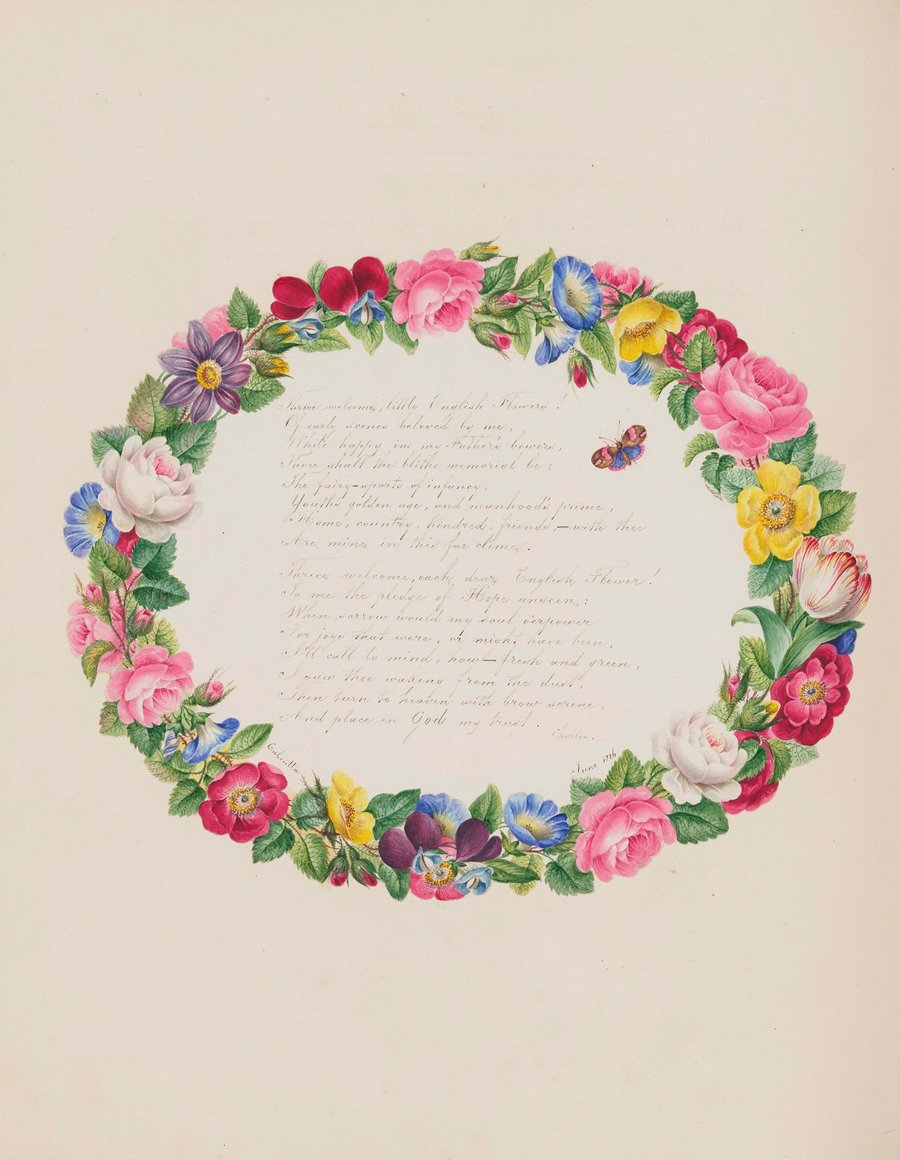 Thrice welcome, little English Flowers!
Of early scenes beloved by me,
While happy in my Father's bowers,
Thou shalt the blithe memorial be:
The fairy-sports of infancy,
Youth's golden age, and manhood's prime,
Home, country, kindred, friends,—with thee
Are mine in this far clime.
Thrice welcome, each dear English Flower!
To me the pledge of Hope unseen;
When sorrow would my soul o'erpower
For joys that were, or might have been,
I'll call to mind, how—fresh and green,
I saw thee waking from the dust,
Then turn to heaven with brow serene,
And place in God my trust.
Charles.
Calcutta
June